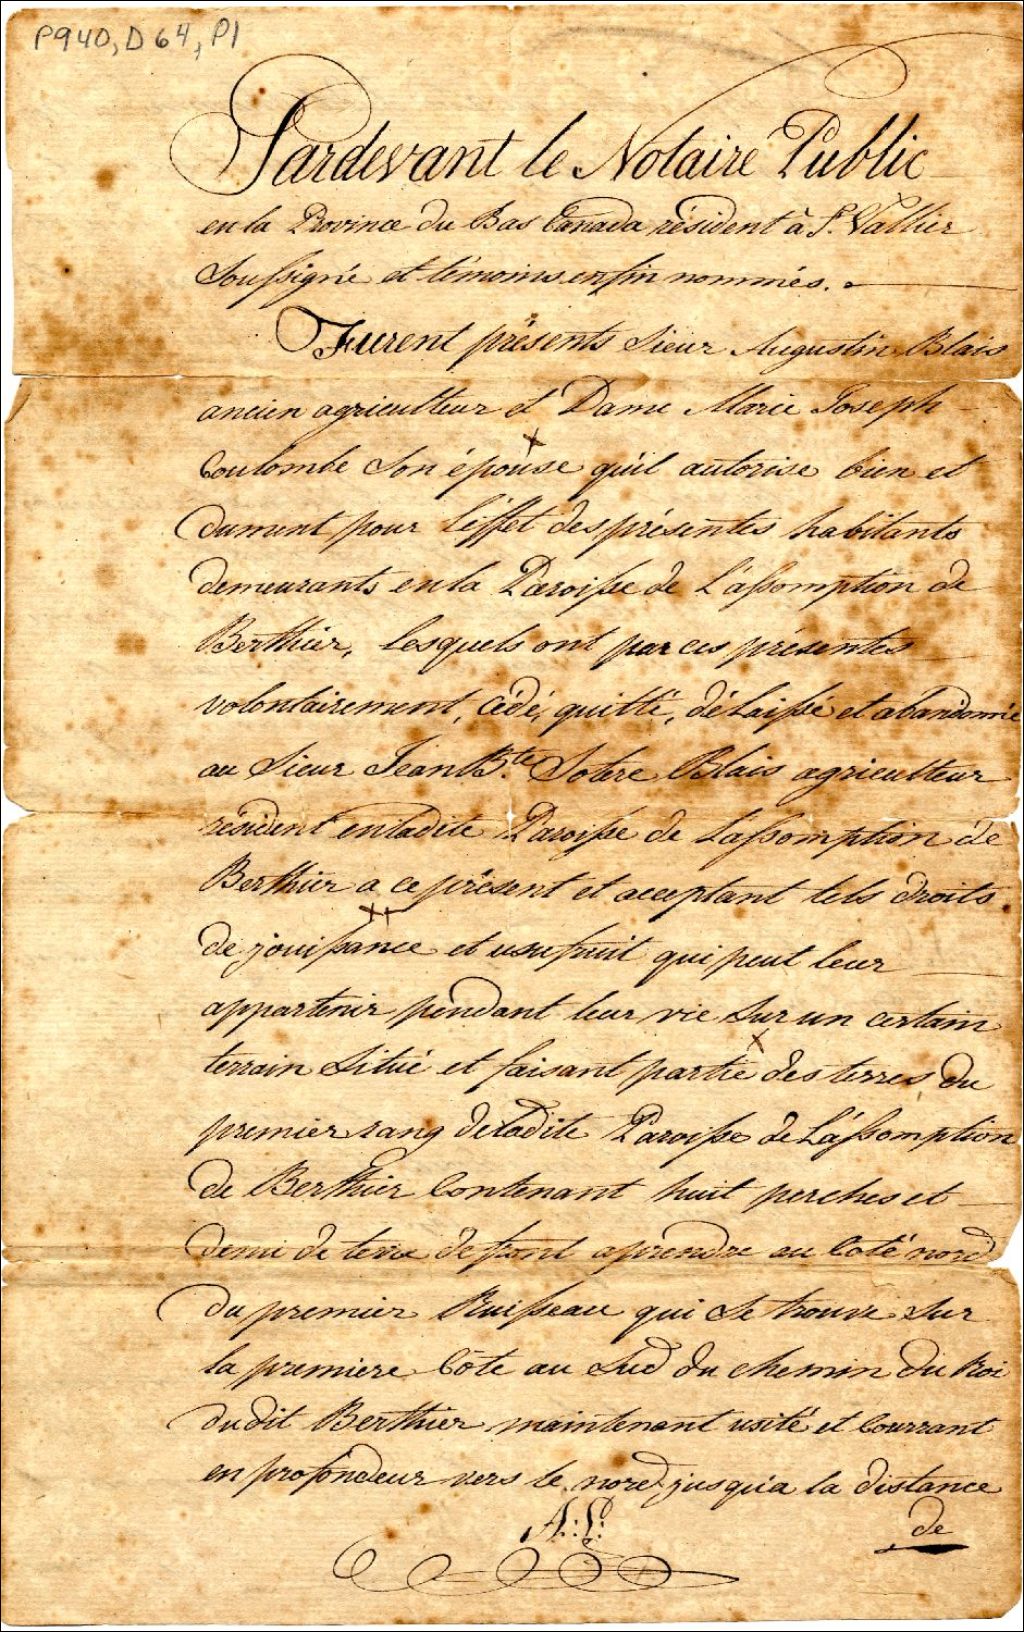 P940, D64, P1
Pardevant le Notaire Public
en la Province du Bas Canada résident à St. Vallier
Soussigné et témoins enfin nommés.
Furent présents Sieur Augustin Blais
ancien agriculteur et Dame Marie Joseph
Coulombe Son épouse qu'il autorise bien et
dument pour l'effet des présentes habitants
demeurants en la Paroisse de L'assomption de
Berthier, Lesquels ont par ces présentes
volontairement, cédé, quitté, délaissé et abandonné
au Sieur Jean Bte. Sotere Blais agriculteur
résident en ladite Paroisse de Lassomption de
Berthier a ce présent et acceptant tels droits
de jouissance et usufruit qui peut leur
appartenir pendant leur vie Sur un certain
terrain Situé et faisant partie des terres du
premier rang de ladite Paroisse de L'assomption
de Berthier Contenant huit perches et
demi de terre de front aprendre au Coté nord
du premier Ruisseau qui Se trouve Sur
la premiere Côte au Sud du Chemin du Roi
du dit Berthier maintenant usité et Courrant
en profondeur vers le nord jusqu'a la distance
A: L:
de